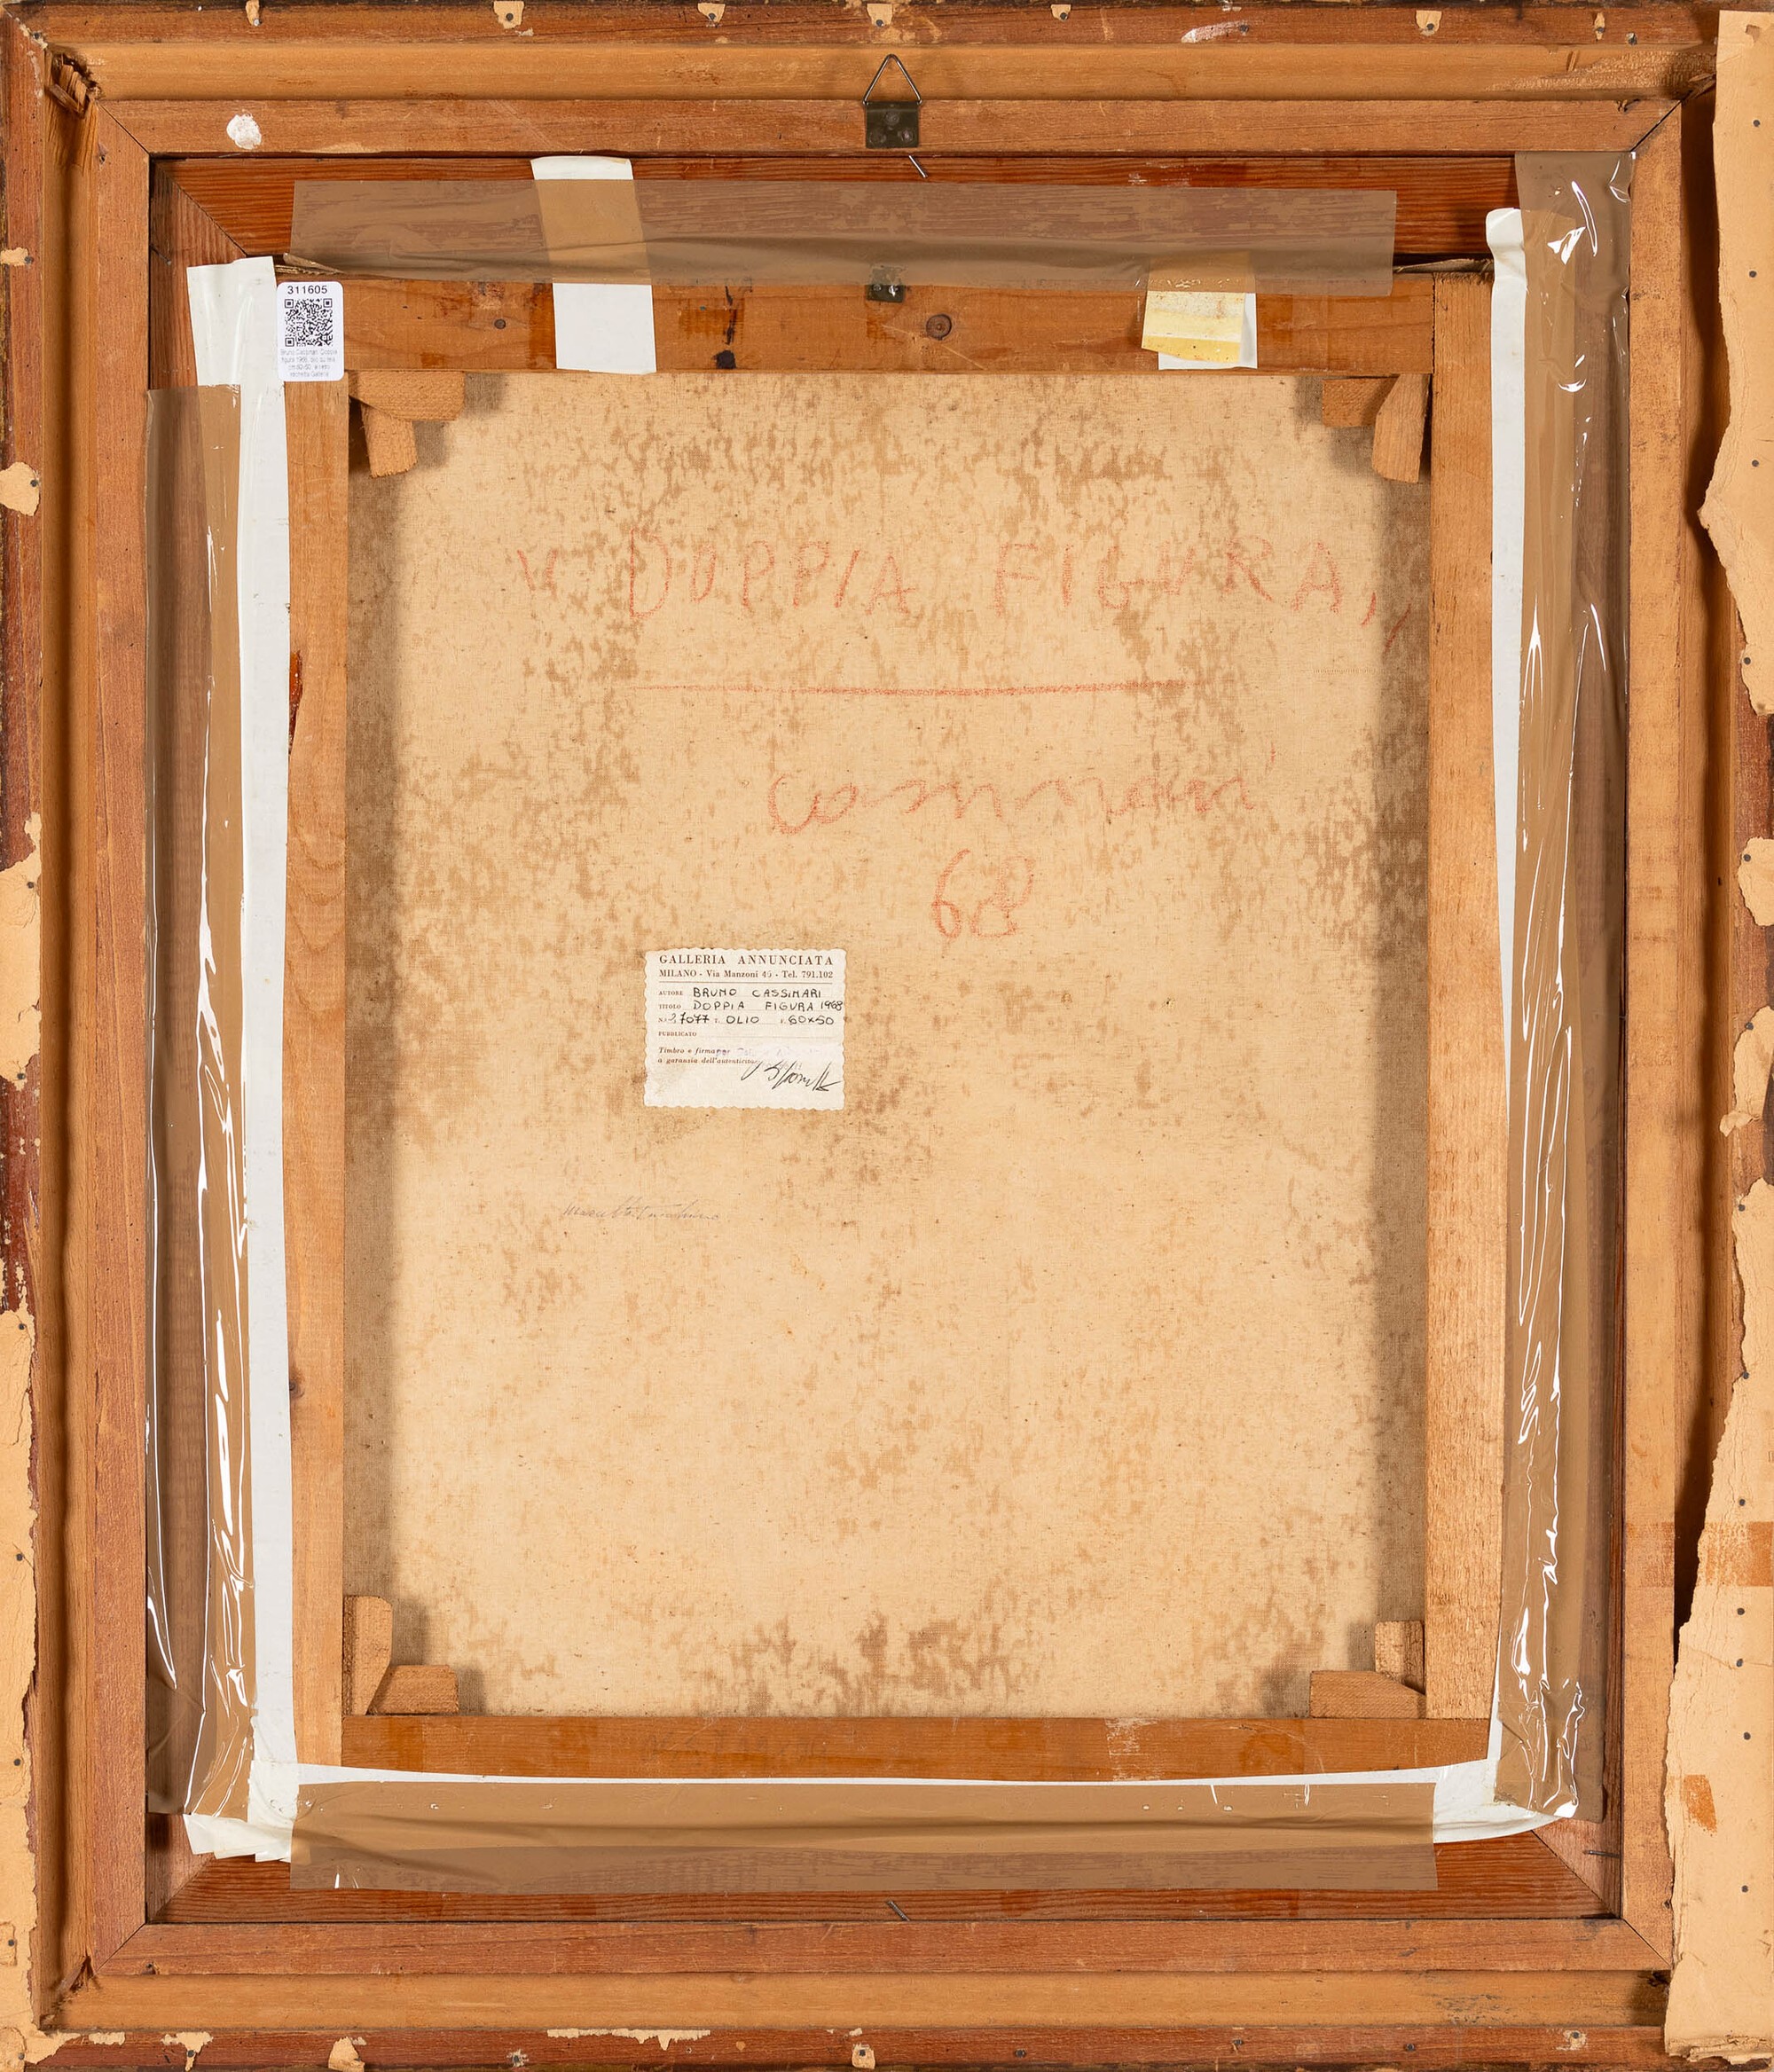 311605
Bruno Cassinari Doppia
figura 1968 olio su tela
cm 60x50
etichetta Galleria
" DOPPIA FIGURA,,
Cassinari
68
GALLERIA ANNUNCIATA
MILANO - Via Manzoni 46 - Tel. 791.102
AUTORE BRUNO CASSINARI
TITOLO DOPPIA FIGURA 1968
N. 27077 T. OLIO F. 60x50
PUBBLICATO
Timbro e firma per
a garanzia dell'autenticità